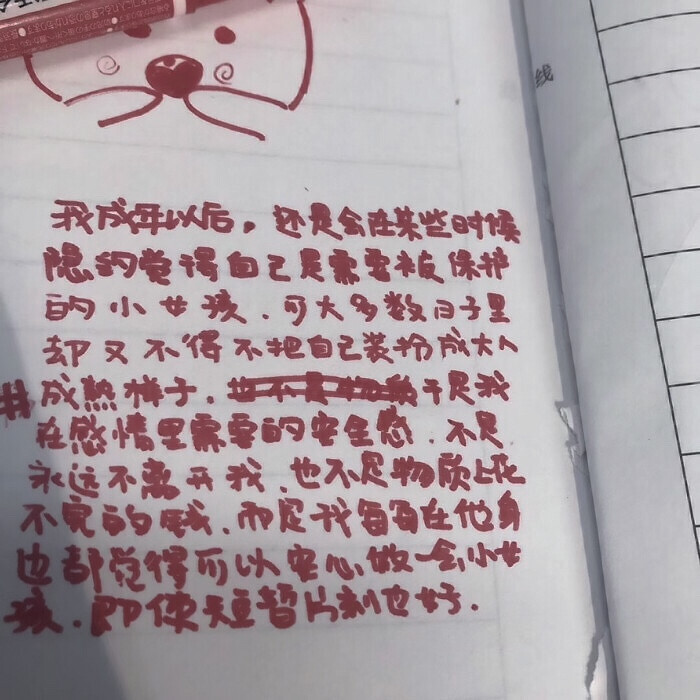 线
我成年以后，还是会在某些时候
隐约觉得自己是需要被保护
的小女孩．可大多数日子里
却又不得不把自己装扮成大人
成熟样子．于是我
在感情里需要的安全感．不是
永远不离开我．也不是物质上花
不完的钱．而是我每每在他身
边都觉得可以安心做一会小女
孩．即使短暂片刻也好．